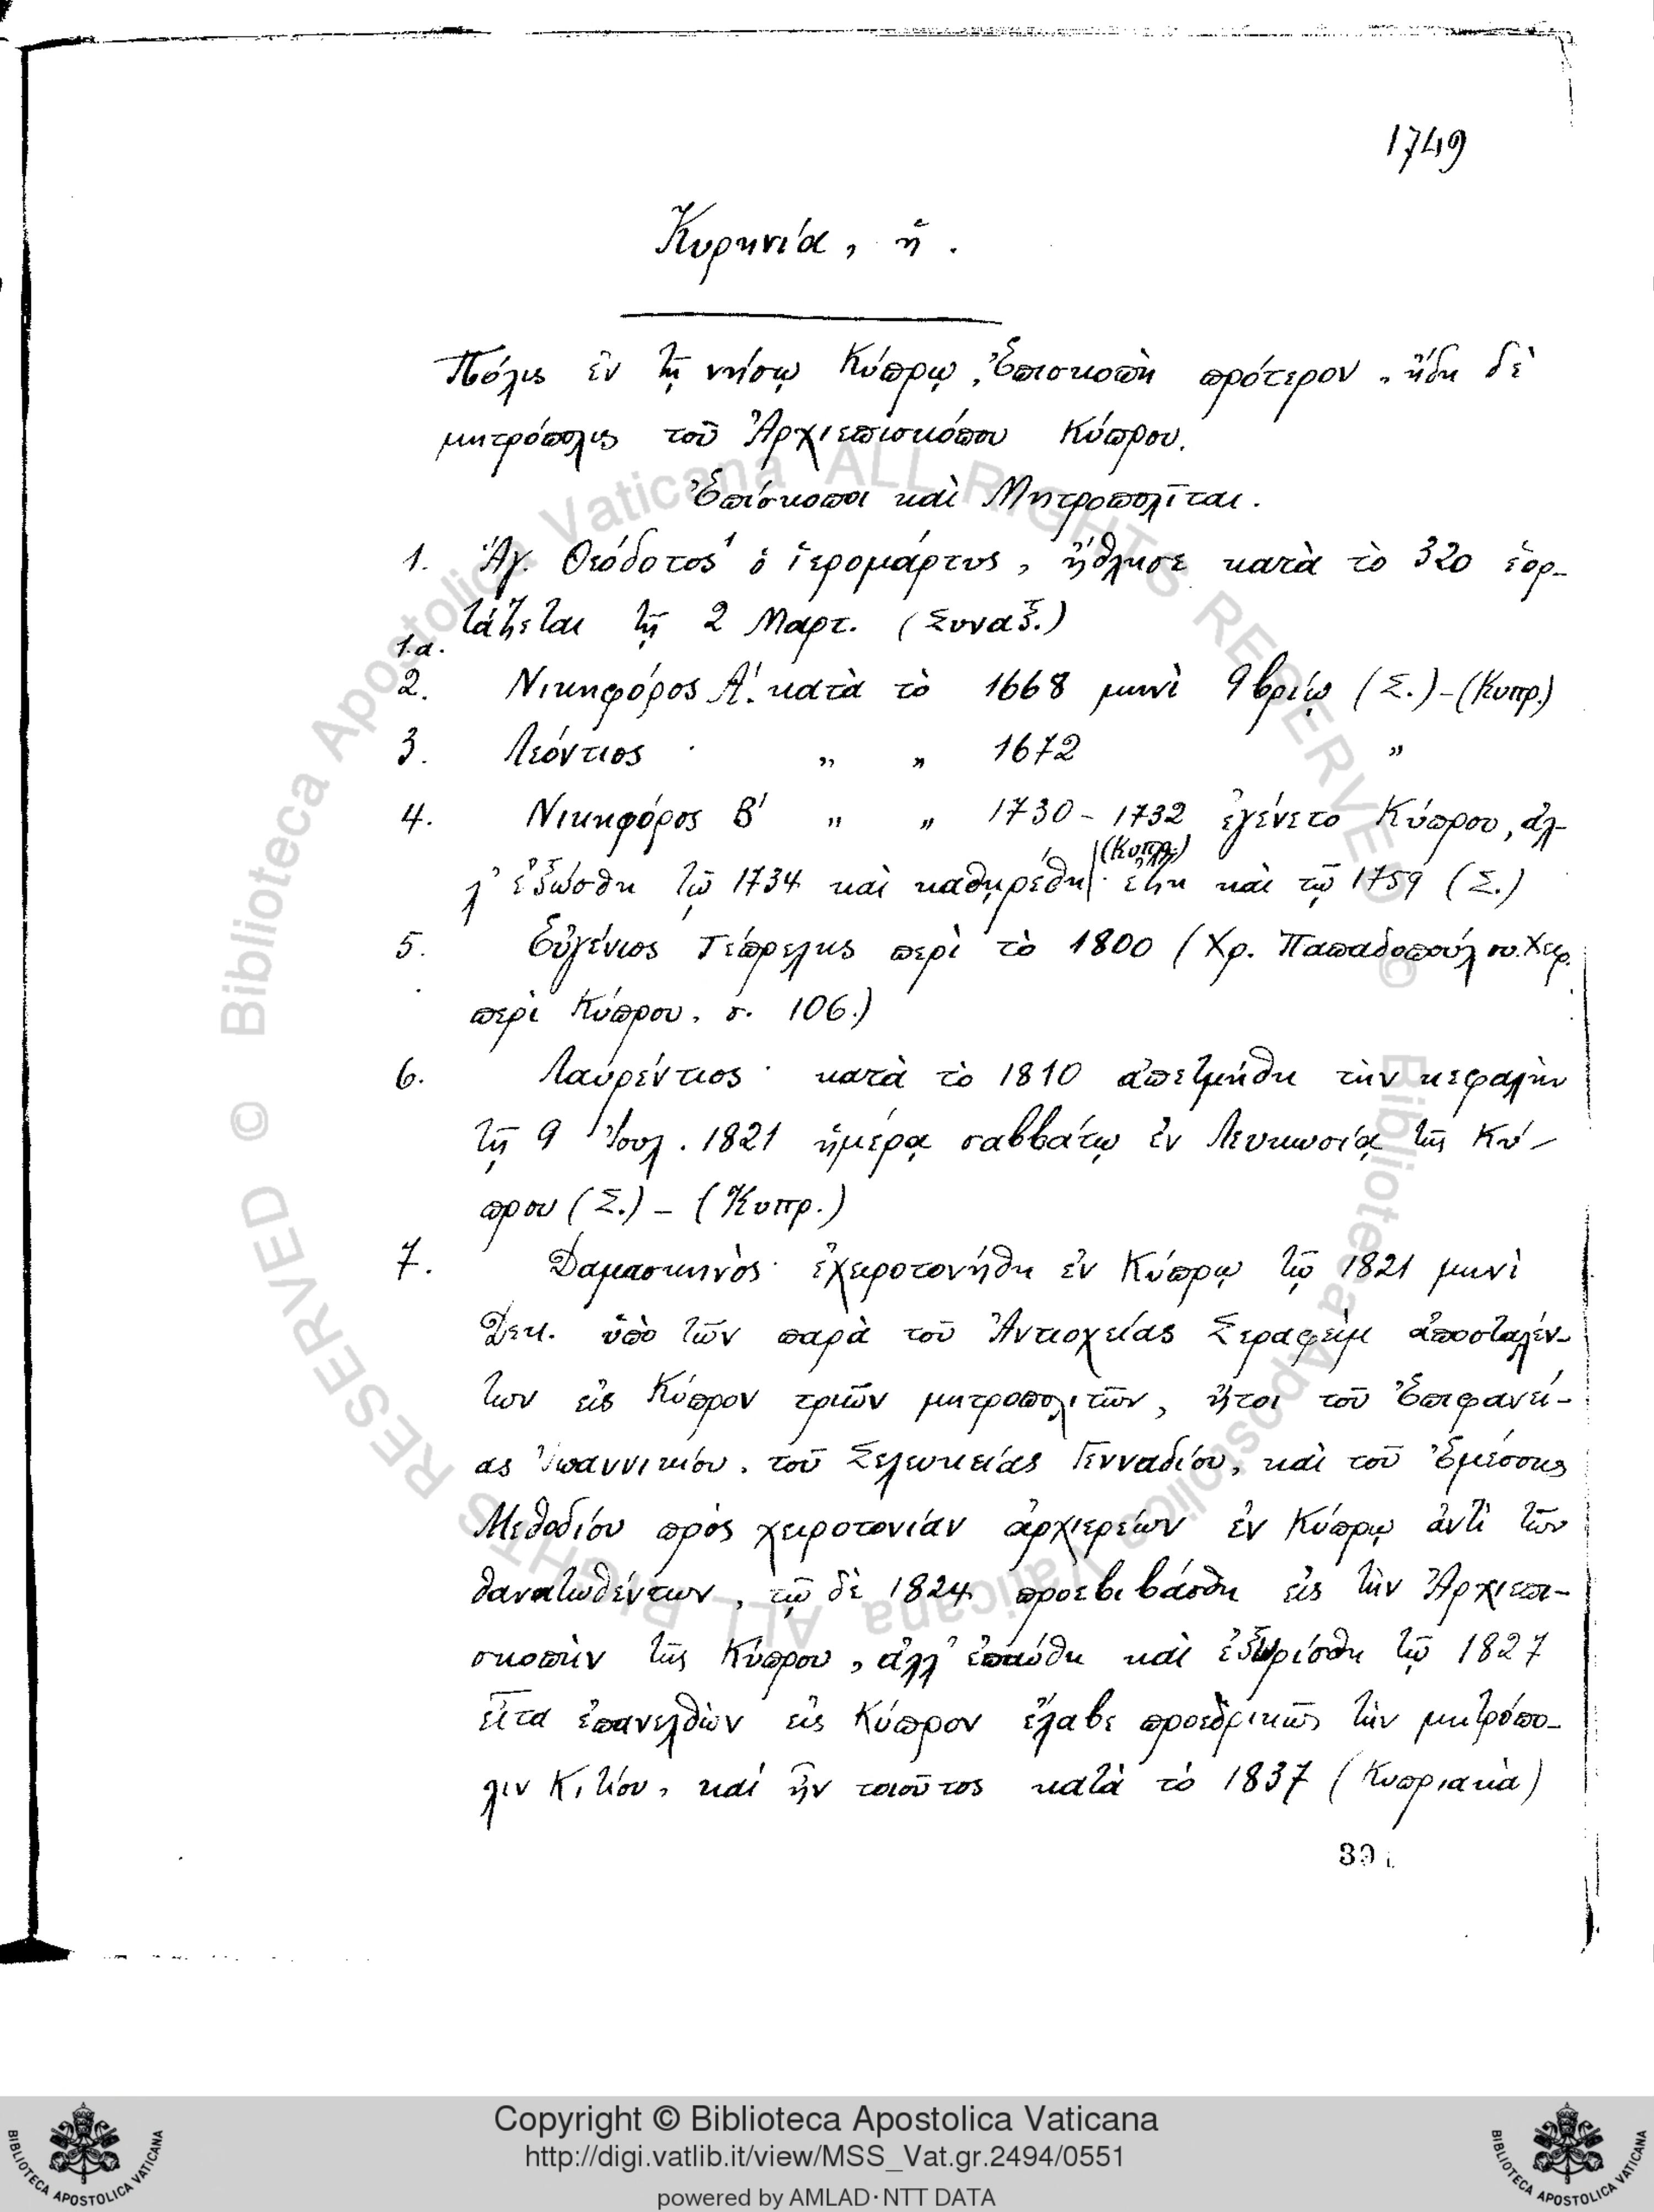 1749
Κυρηνία, ἡ.
Πόλις ἐν τῇ νήσῳ Κύπρῳ, Ἐπισκοπὴ πρότερον, ἤδη δὲ
μητρόπολις τοῦ Ἀρχιεπισκόπου Κύπρου.
Ἐπίσκοποι καὶ Μητροπολῖται.
1. Ἁγ. Θεόδοτος ὁ ἱερομάρτυς, ἤθλησε κατὰ τὸ 320 ἑορ-
τάζεται τῇ 2 Μαρτ. (Συναξ.)
1.α.
2. Νικηφόρος Α΄. κατὰ τὸ 1668 μηνὶ 9βρίῳ (Σ.) - (Κυπρ.)
3. Λεόντιος „ „ 1672 „
4. Νικηφόρος Β΄ „ „ 1730 - 1732 ἐγένετο Κύπρου, ἀλ-
(Κυπρ.)
λ’ ἐξώσθη τῷ 1734 καὶ καθῃρέθη· ἔζη καὶ τῷ 1759 (Σ.)
5. Εὐγένιος περὶ τὸ 1800 (Χρ. Παπαδοπούλου. Χειρ.
περὶ Κύπρου. σ. 106.)
6. Λαυρέντιος· κατὰ τὸ 1810 ἀπετμήθη τὴν κεφαλὴν
τῇ 9 Ἰουλ. 1821 ἡμέρᾳ σαββάτῳ ἐν Λευκωσίᾳ τῆς Κύ-
πρου (Σ.) - (Κυπρ.)
7. Δαμασκηνὸς· ἐχειροτονήθη ἐν Κύπρῳ τῷ 1821 μηνὶ
Δεκ. ὑπὸ τῶν παρὰ τοῦ Ἀντιοχείας Σεραφεὶμ ἀποσταλέν-
των εἰς Κύπρον τριῶν μητροπολιτῶν, ἤτοι τοῦ Ἐπιφανεί-
ας Ἰωαννικίου, τοῦ Σελευκείας Γενναδίου, καὶ τοῦ Ἐμέσσης
Μεθοδίου πρὸς χειροτονίαν ἀρχιερείων ἐν Κύπρῳ ἀντὶ τῶν
θανατωθέντων, τῷ δὲ 1824 προεβιβάσθη εἰς τὴν Ἀρχιεπι-
σκοπὴν τῆς Κύπρου, ἀλλ’ ἐπαύθη καὶ ἐξωρίσθη τῷ 1827
εἶτα ἐπανελθὼν εἰς Κύπρον ἔλαβε προεδρικῶς τὴν μητρόπο-
λιν Κιτίου, καὶ ἦν τοιοῦτος κατὰ τὸ 1837 (Κυπριακὰ)
© Biblioteca Apostolica Vaticana ALL RIGHTS RESERVED © Biblioteca Apostolica Vaticana ALL RIGHTS RESERVED
Copyright © Biblioteca Apostolica Vaticana
http://digi.vatlib.it/view/MSS_Vat.gr.2494/0551
powered by AMLAD·NTT DATA
BIBLIOTECA APOSTOLICA VATICANA
BIBLIOTECA APOSTOLICA VATICANA